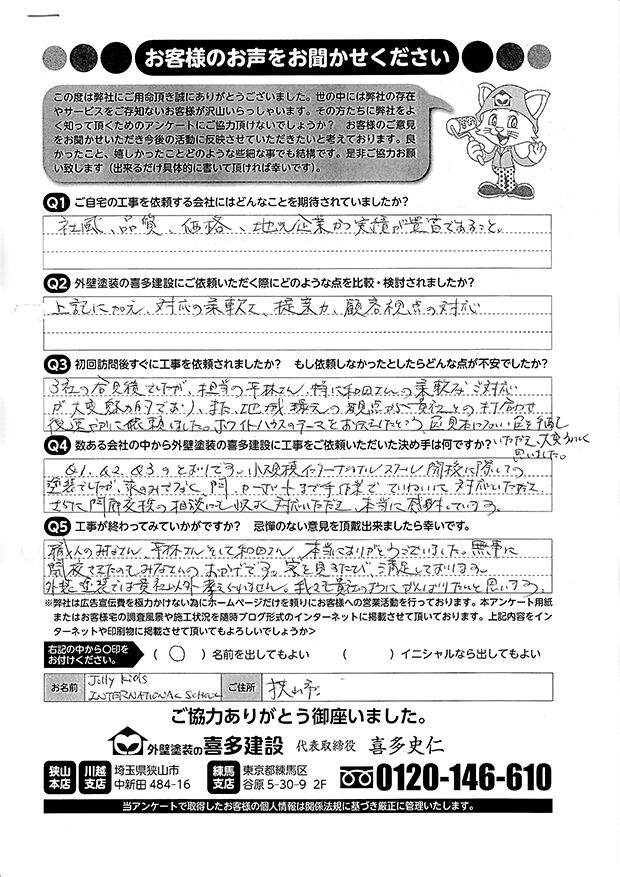 お客様のお声をお聞かせください
この度は弊社にご用命頂き誠にありがとうございました。世の中には弊社の存在
やサービスをご存知ないお客様が沢山いらっしゃいます。その方たちに弊社をよ
く知って頂くためのアンケートにご協力頂けないでしょうか？ お客様のご意見
をお聞かせいただき今後の活動に反映させていただきたいと考えております。良
かったこと、嬉しかったことどのような些細な事でも結構です。是非ご協力お願
い致します（出来るだけ具体的に書いて頂ければ幸いです）。
Q1 ご自宅の工事を依頼する会社にはどんなことを期待されていましたか？
社風、品質、価格、地元企業かつ実績が豊富であること。
Q2 外壁塗装の喜多建設にご依頼いただく際にどのような点を比較・検討されましたか？
上記に加え、対応の柔軟さ、提案力、顧客視点の対応
Q3 初回訪問後すぐに工事を依頼されましたか？ もし依頼しなかったとしたらどんな点が不安でしたか？
3社の合見積でしたが、担当の平林さん、特に和田さんの柔軟なご対応
が大変魅力的であり、また、地域 の観点から貴社との打合わせ
後速やかに依頼しました。ホワイトハウスのテーマをお伝えしたところ 色見本にない色を
いただき、大変うれしく
思いました。
Q4 数ある会社の中から外壁塗装の喜多建設に工事をご依頼いただいた決め手は何ですか？
Q1、Q2、Q3のとおりです。小規模インターナショナルスクール開校に際しての
塗装でしたが、家のみでなく、門、カーポートまで手作業で、ていねいに対応いただき
さらに開所交渉の相談にも快く対応いただき、本当に感謝しています。
Q5 工事が終わってみていかがですか？ 忌憚のない意見を頂戴出来ましたら幸いです。
職人のみなさん、平林さんそして和田さん、本当にありがとうございました。無事に
開校できたのもみなさんのおかげです。家を見るたび、満足しております。
外装塗装では貴社以外考えていません。私も貴社のように、がんばりたいと思います。
※弊社は広告宣伝費を極力かけない為にホームページだけを頼りにお客様への営業活動を行っております。本アンケート用紙
またはお客様宅の調査風景や施工状況を随時ブログ形式のインターネットに掲載させて頂いております。上記内容をイン
ターネットや印刷物に掲載させて頂いてもよろしいでしょうか＞
右記の中から〇印を
お付けください。
（ 〇 ）名前を出してもよい （ ）イニシャルなら出してもよい
お名前 Jolly Kids
INTERNATIONAL SCHOOL
ご住所 狭山市
ご協力ありがとう御座いました。
外壁塗装の喜多建設 代表取締役 喜多史仁
狭山本店 川越支店 埼玉県狭山市中新田 484-16 練馬支店 東京都練馬区谷原 5-30-9 2F 0120-146-610
当アンケートで取得したお客様の個人情報は関係法規に基づき厳正に管理いたします。